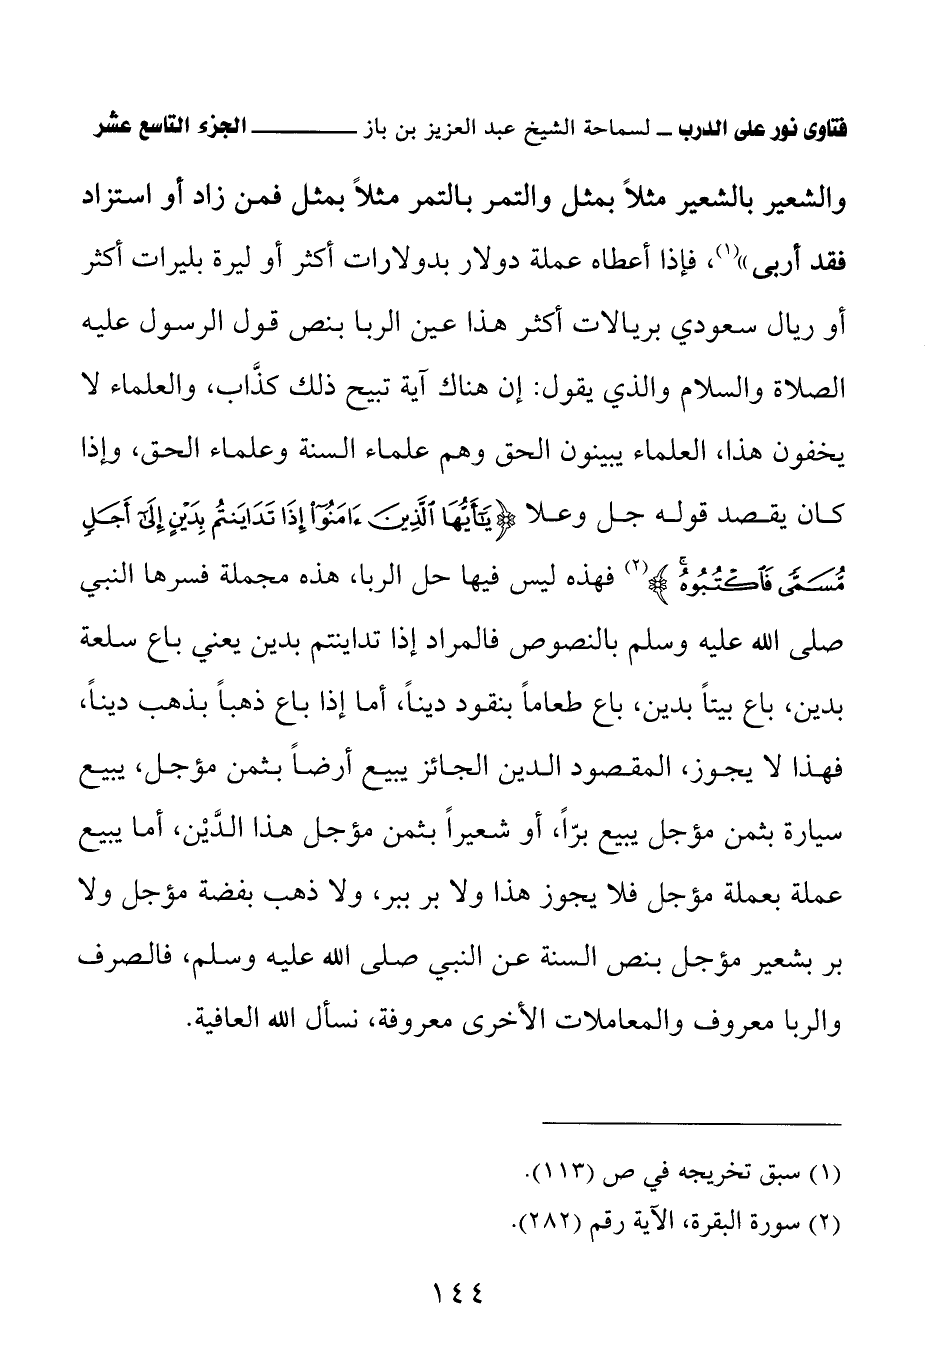 فتاوى نور على الدرب ــ لسماحة الشيخ عبد العزيز بن باز ــــــــــــ الجزء التاسع عشر
والشعير بالشعير مثلاً بمثل والتمر بالتمر مثلاً بمثل فمن زاد أو استزاد
فقد أربى»(١)، فإذا أعطاه عملة دولار بدولارات أكثر أو ليرة بليرات أكثر
أو ريال سعودي بريالات أكثر هذا عين الربا بنص قول الرسول عليه
الصلاة والسلام والذي يقول: إن هناك آية تبيح ذلك كذَّاب، والعلماء لا
يخفون هذا، العلماء يبينون الحق وهم علماء السنة وعلماء الحق، وإذا
كان يقصد قوله جل وعلا ﴿يَٰٓأَيُّهَا ٱلَّذِينَ ءَامَنُوٓاْ إِذَا تَدَايَنتُم بِدَيْنٍ إِلَىٰٓ أَجَلٍ
مُّسَمًّى فَٱكْتُبُوهُ ۚ﴾(٢) فهذه ليس فيها حل الربا، هذه مجملة فسرها النبي
صلى الله عليه وسلم بالنصوص فالمراد إذا تداينتم بدين يعني باع سلعة
بدين، باع بيتاً بدين، باع طعاماً بنقود ديناً، أما إذا باع ذهباً بذهب ديناً،
فهذا لا يجوز، المقصود الدين الجائز يبيع أرضاً بثمن مؤجل، يبيع
سيارة بثمن مؤجل يبيع برّاً، أو شعيراً بثمن مؤجل هذا الدَّيْن، أما يبيع
عملة بعملة مؤجل فلا يجوز هذا ولا بر ببر، ولا ذهب بفضة مؤجل ولا
بر بشعير مؤجل بنص السنة عن النبي صلى الله عليه وسلم، فالصرف
والربا معروف والمعاملات الأخرى معروفة، نسأل الله العافية.
(١) سبق تخريجه في ص (١١٣).
(٢) سورة البقرة، الآية رقم (٢٨٢).
١٤٤